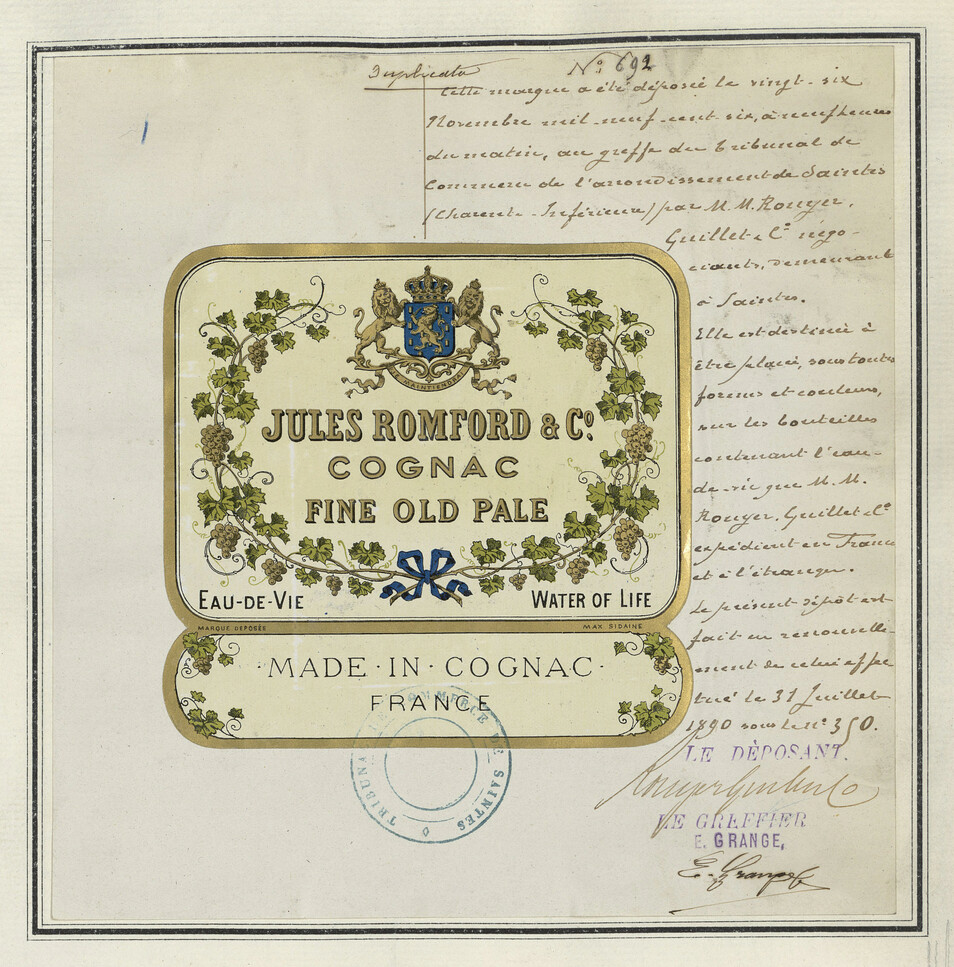 Duplicata
N° 692
Cette marque a été déposée le vingt-six
Novembre mil-neuf-cent-six, à neuf heures
du matin, au greffe du Tribunal de
Commerce de l'arrondissement de Saintes
(Charente-Inférieure) par M.M. Rouyer,
Guillet & Cⁱᵉ négo-
ciants, demeurant
à Saintes.
Elle est destinée à
être placée, sous toutes
formes et couleurs,
sur les bouteilles
contenant l'eau-
de-vie que M.M.
Rouyer, Guillet & Cⁱᵉ
expédient en France
et à l'étranger.
Le présent dépôt est
fait en renouvelle-
ment de celui effec
tué le 31 Juillet
1890 sous le n° 350.
LE DÉPOSANT.
Rouyer Guillet & Co
LE GREFFIER
E. GRANGE,
E. Grange
JE MAINTIENDRAI
JULES ROMFORD & Cº.
COGNAC
FINE OLD PALE
EAU-DE-VIE
WATER OF LIFE
MARQUE DÉPOSÉE
MAX. SIDAINE
MADE · IN · COGNAC ·
FRANCE
TRIBUNAL DE COMMERCE DE SAINTES